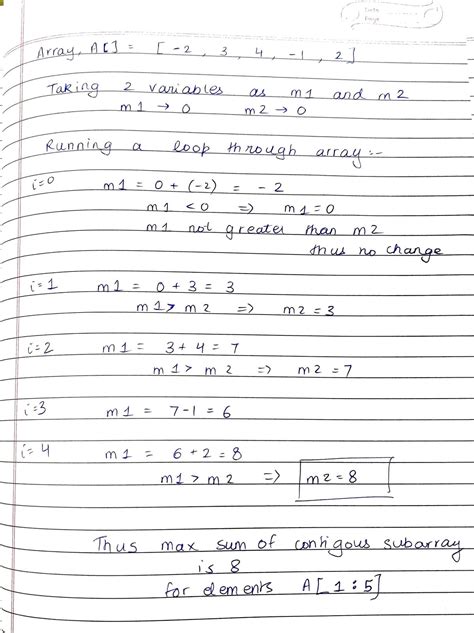 Date
Page
Array, A[] = [-2, 3, 4, -1, 2]
Taking 2 variables as m1 and m2
m1 → 0 m2 → 0
Running a loop through array :-
i=0 m1 = 0 + (-2) = -2
m1 < 0 => m1 = 0
m1 not greater than m2
thus no change
i=1 m1 = 0 + 3 = 3
m1 > m2 => m2 = 3
i=2 m1 = 3 + 4 = 7
m1 > m2 => m2 = 7
i=3 m1 = 7-1 = 6
i=4 m1 = 6 + 2 = 8
m1 > m2 => m2 = 8
Thus max sum of contigous subarray
is 8
for elements A[1:5]